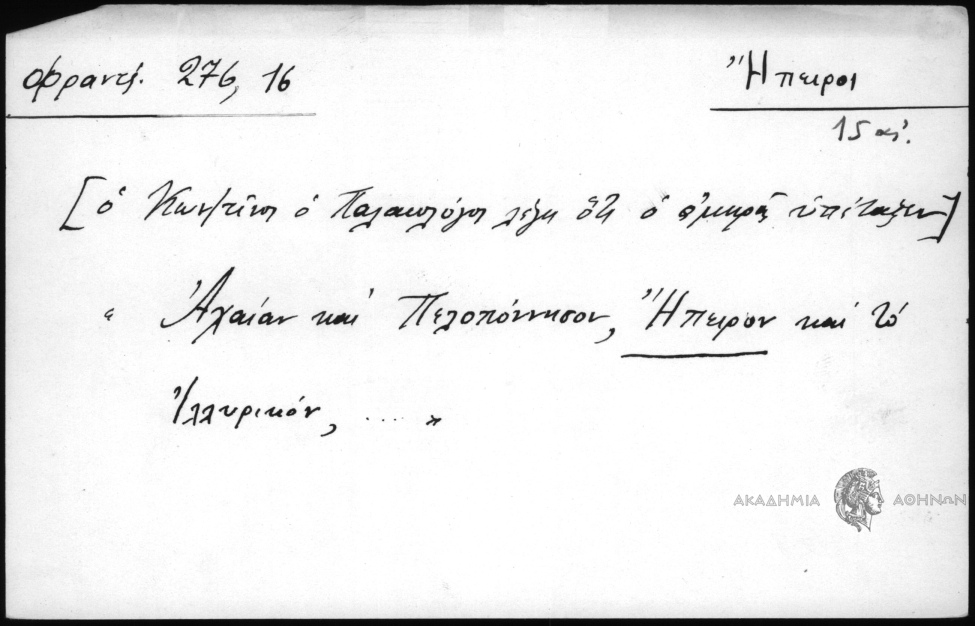 Φραντζ. 276, 16
Ἤπειρος
15 αἰ.
[ὁ Κων/τῖνος ὁ Παλαιολόγος λέγει ὅτι ὁ ἀμηρᾶς ὑπέταξεν]
« Ἀχαίαν καὶ Πελοπόννησον, Ἤπειρον καὶ τὸ
Ἰλλυρικόν, ..... »
ΑΚΑΔΗΜΙΑ ΑΘΗΝΩΝ